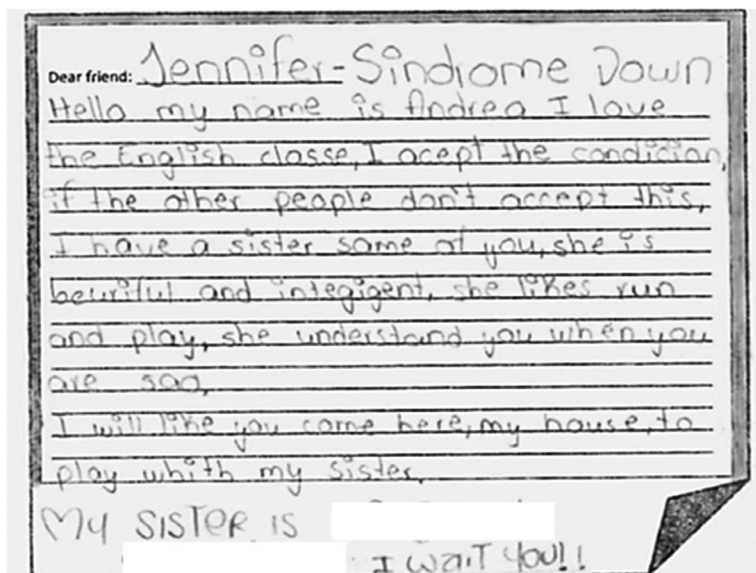 Dear friend: Jennifer-Sindrome Down
Hello my name is Andrea I love
the English classe, I acept the condician,
if the other people don't accept this,
I have a sister same of you, she is
beuriful and integigent, she likes run
and play, she understand you when you
are sad,
I will like you came here, my house, to
play whith my sister.
My SISTER IS
I WAIT YOU!!